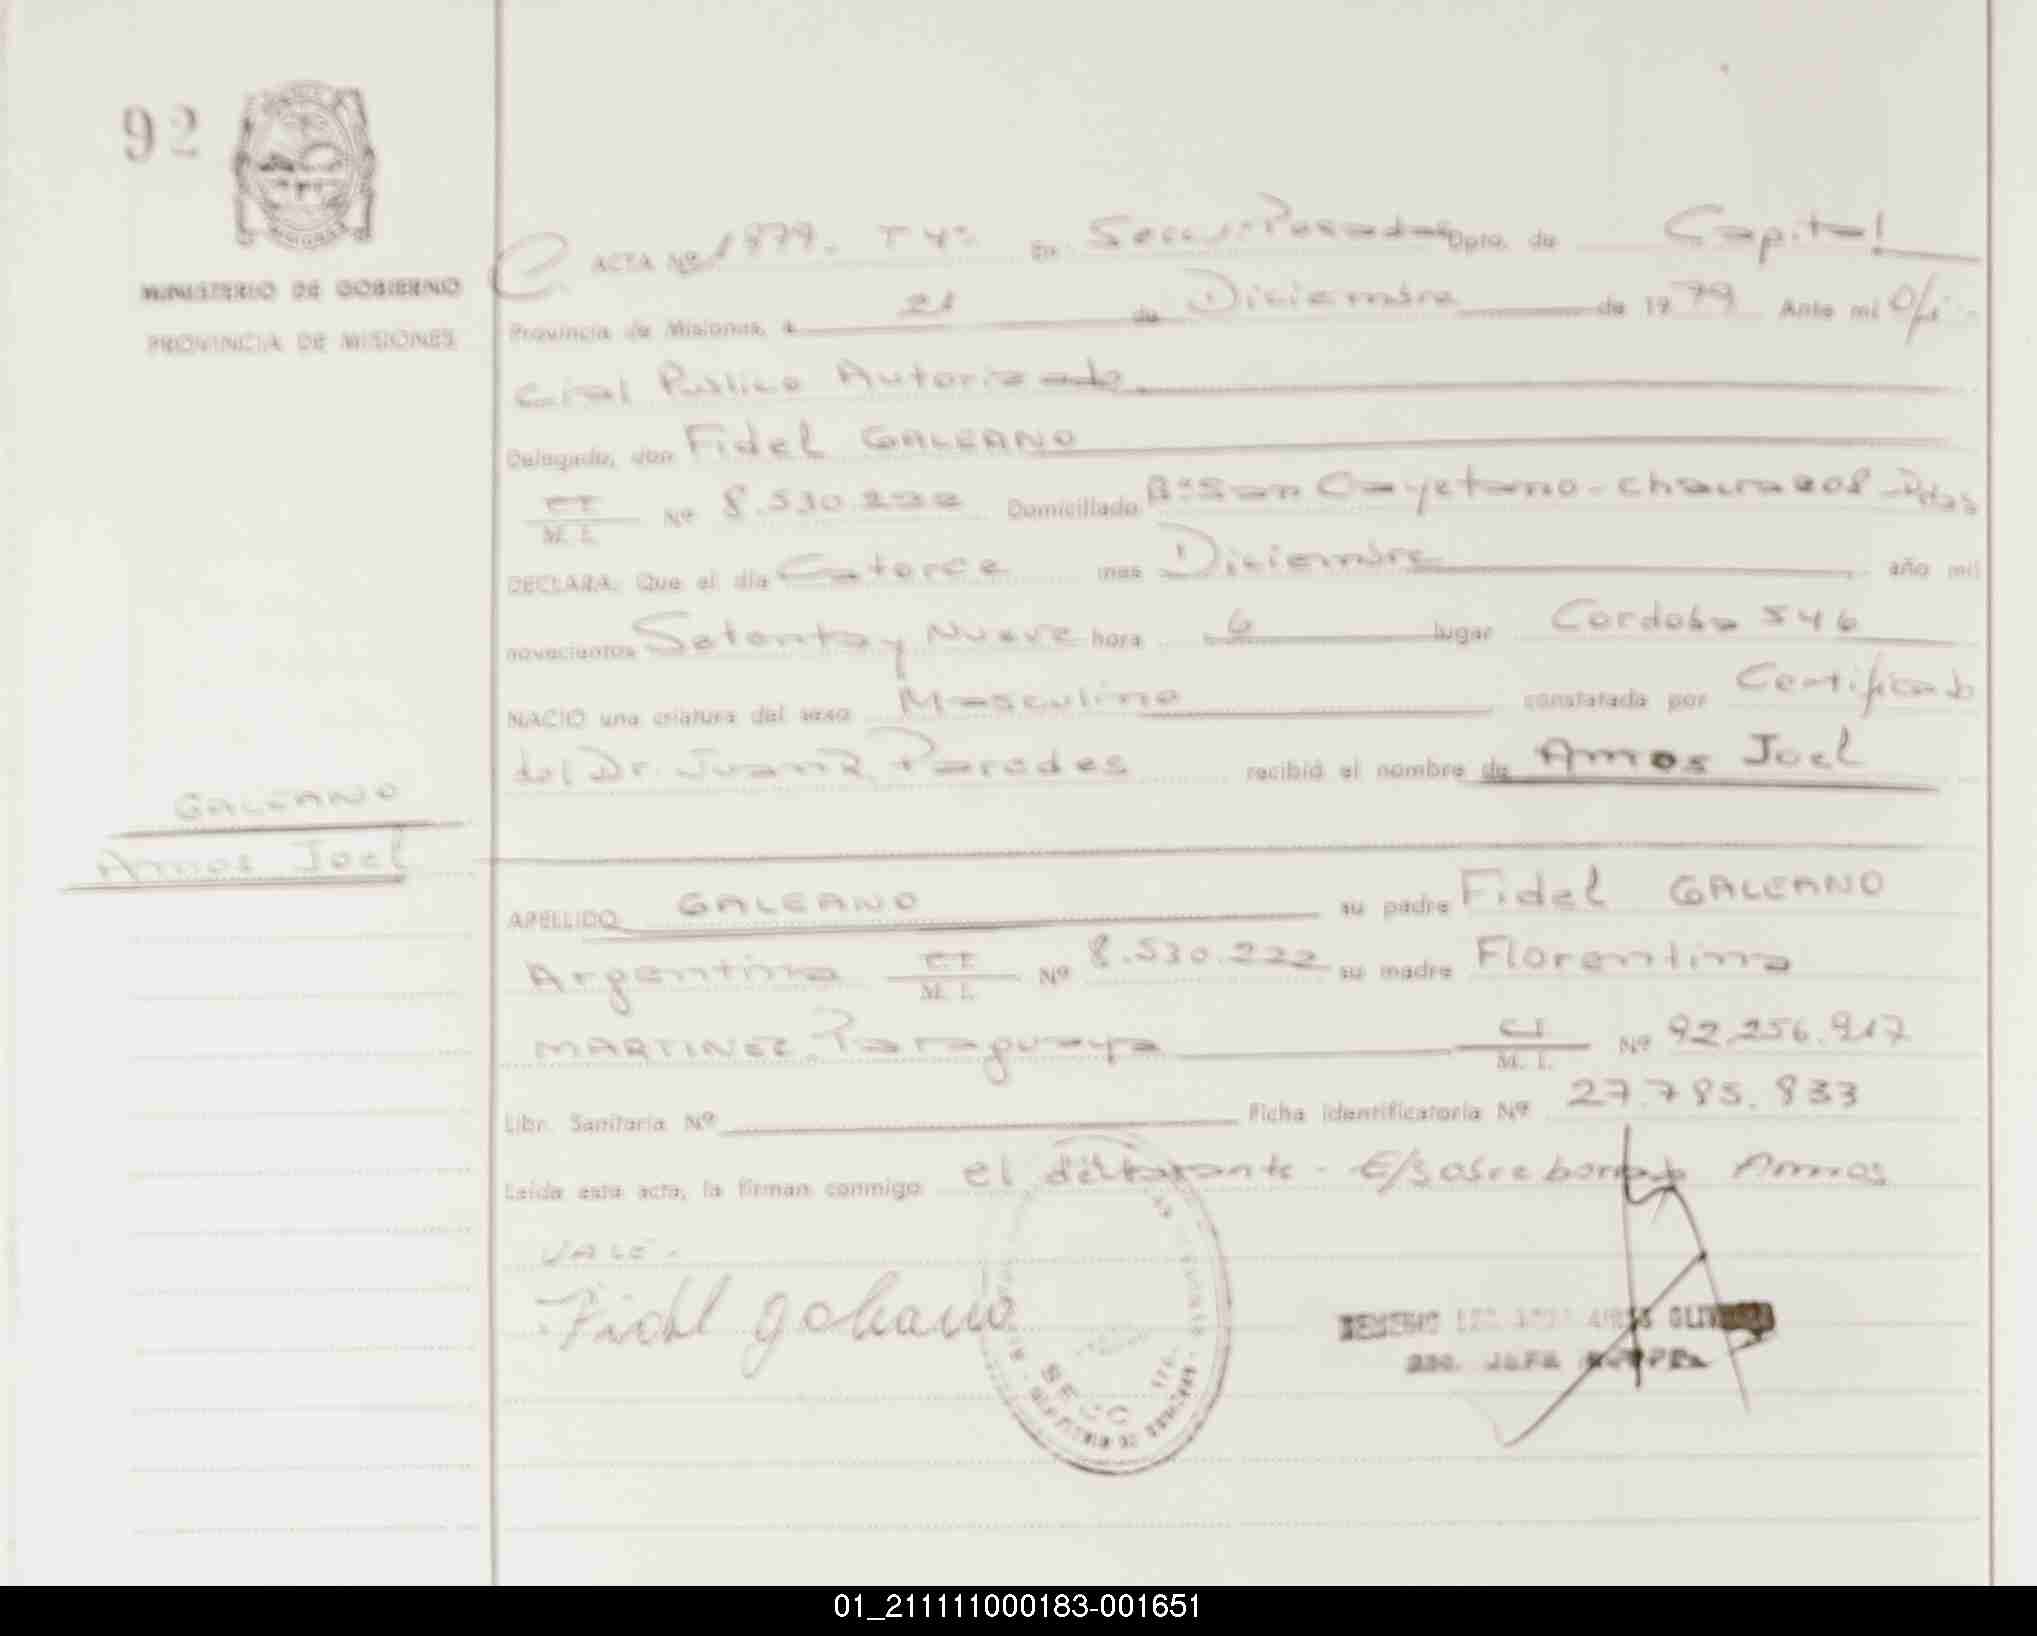 92
MINISTERIO DE GOBIERNO
PROVINCIA DE MISIONES
ACTA Nº 1879. Tº 4º En Secc. 1ª Posadas Dpto. de Capital
Provincia de Misiones, a 21 de Diciembre de 1979 Ante mi Ofi-
cial Publico Autorizado
Delegado, don Fidel GALEANO
C.I. M. I. Nº 8.530.222 Domiciliado Bº San Cayetano - chacra 208 - Pdas
DECLARA: Que el día Catorce mes Diciembre año mil
novecientos Setenta y Nueve hora 6 lugar Cordoba 546
NACIO una criatura del sexo Masculino constatada por Certificado
del Dr. Juan R. Paredes recibió el nombre de Amos Joel
GALEANO
Amos Joel
APELLIDO GALEANO su padre Fidel GALEANO
Argentino C.I. M. I. Nº 8.530.222 su madre Florentina
MARTINEZ Paraguaya C.I. M. I. Nº 92.256.917
Libr. Sanitaria Nº Ficha identificatoria Nº 27.785.833
Leída esta acta, la firman conmigo el declarante - E/sobre borrado Amos
VALE.
Fidel galeano
SECC
2do. JEFE
01_211111000183-001651